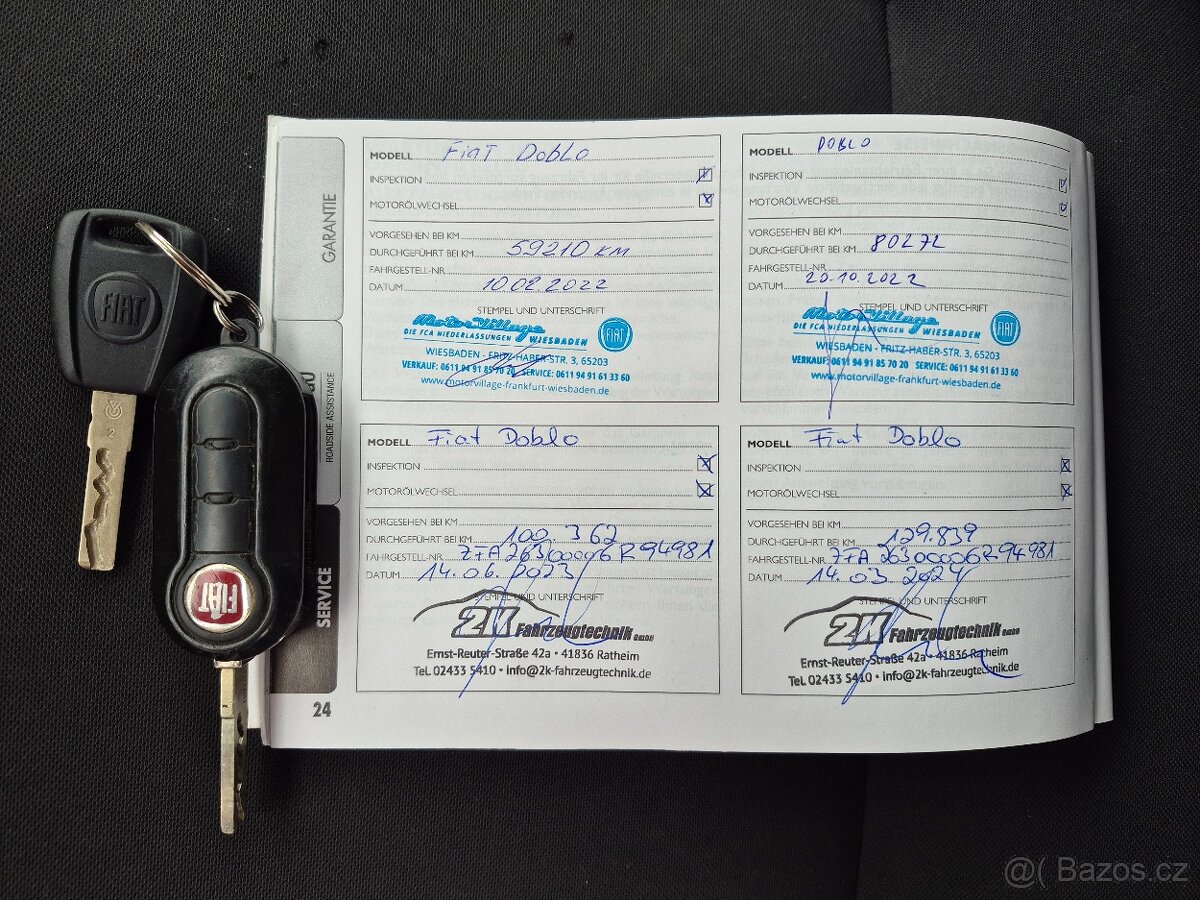 GARANTIE
ROADSIDE ASSISTANCE
SERVICE
24
FIAT
2
FIAT
MODELL Fiat Doblo
INSPEKTION
MOTORÖLWECHSEL
VORGESEHEN BEI KM
DURCHGEFÜHRT BEI KM 59210 KM
FAHRGESTELL-NR.
DATUM 10.02.2022
STEMPEL UND UNTERSCHRIFT
Motor Village
DIE FCA NIEDERLASSUNGEN WIESBADEN
FIAT
WIESBADEN - FRITZ-HABER-STR. 3, 65203
VERKAUF: 0611 94 91 85 70 20 SERVICE: 0611 94 91 61 33 60
www.motorvillage-frankfurt-wiesbaden.de
MODELL DOBLO
INSPEKTION
MOTORÖLWECHSEL
VORGESEHEN BEI KM
DURCHGEFÜHRT BEI KM
FAHRGESTELL-NR.
DATUM 20.10.2022
STEMPEL UND UNTERSCHRIFT
Motor Village
DIE FCA NIEDERLASSUNGEN WIESBADEN
FIAT
WIESBADEN - FRITZ-HABER-STR. 3, 65203
VERKAUF: 0611 94 91 85 70 20 SERVICE: 0611 94 91 61 33 60
www.motorvillage-frankfurt-wiesbaden.de
MODELL Fiat Doblo
INSPEKTION
MOTORÖLWECHSEL
VORGESEHEN BEI KM
DURCHGEFÜHRT BEI KM 100.362
FAHRGESTELL-NR. ZFA26300006R94981
DATUM 14.06.2023
STEMPEL UND UNTERSCHRIFT
2K Fahrzeugtechnik GmbH
Ernst-Reuter-Straße 42a • 41836 Ratheim
Tel. 02433 5410 • info@2k-fahrzeugtechnik.de
MODELL Fiat Doblo
INSPEKTION
MOTORÖLWECHSEL
VORGESEHEN BEI KM
DURCHGEFÜHRT BEI KM 129.839
FAHRGESTELL-NR. ZFA26300006R94981
DATUM 14.03.2024
STEMPEL UND UNTERSCHRIFT
2K Fahrzeugtechnik GmbH
Ernst-Reuter-Straße 42a • 41836 Ratheim
Tel. 02433 5410 • info@2k-fahrzeugtechnik.de
@( Bazos.cz